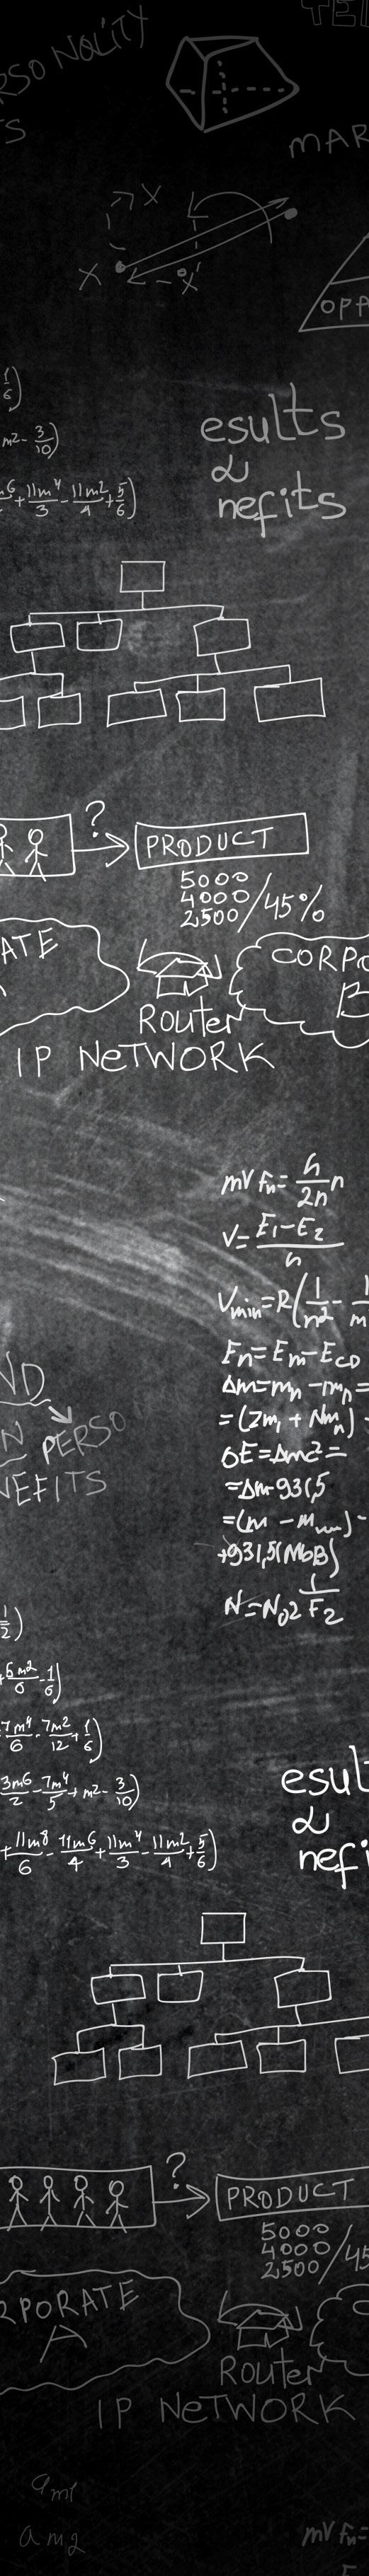 RSONOLITY
TS
MAR
OPP
1/6)
m2- 3/10)
+ 11m4/3 - 11m2/4 + 5/6)
esults
&
nefits
?
PRODUCT
5000
4000
2,500 / 45%
ATE
CORPO
B
Router
IP NETWORK
mV Fn= h/2n n
V= E1-E2/h
Vmin=R(1/n2 - 1/m
Fn=Em-ECD
Δm=mn-mn=
=(Zm1 + Nmn) -
ΔE=Δmc2=
=Δm931,5
=(m - m
+931,5(MbB)
ND
N PERSO
NEFITS
1/2)
+ 5m2/6 - 1/6)
7m4/6 - 7m2/12 + 1/6)
3m6/2 - 7m4/5 + m2- 3/10)
+ 11m8/6 - 11m6/4 + 11m4/3 - 11m2/4 + 5/6)
esul
&
nefi
?
PRODUCT
5000
4000
2,500 / 45
RPORATE
A
C
Router
IP NETWORK
am1
am2
mV Fn=